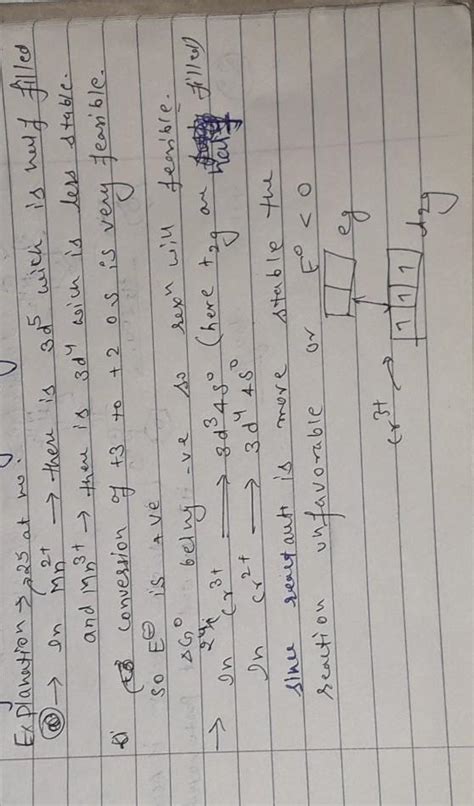 Explanation → 25 at no.
(a) → In Mn²⁺ → there is 3d⁵ wich is half filled
and Mn³⁺ → there is 3d⁴ wich is less stable.
conversion of +3 to +2 OS is very feasible.
so E⊖ is +ve
ΔG° being -ve so rexⁿ will feasible.
→ In Cr³⁺ → 3d³4s⁰ (here t₂g are half filled)
In Cr²⁺ → 3d⁴ 4s⁰
since reactant is more stable the
reaction unfavorable or E° < 0
eg
Cr³⁺ → 1 1 1 d2g